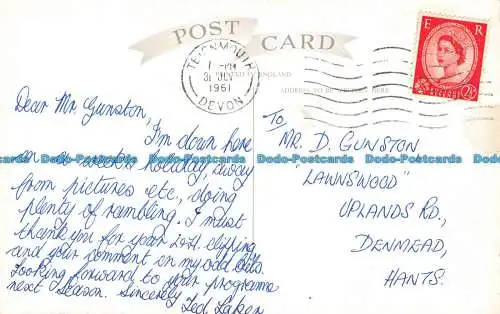 POST CARD
E R
TEIGNMOUTH
1 - PM
1961
DEVON
ADDRESS TO BE WRITTEN HERE
POSTAGE REVENUE
2½D
Dear Mr. Gunston,
I'm down here
on a week's holiday, away
from pictures etc., doing
plenty of rambling. I must
thank you for your clipping
and your comment on my odd bits.
Looking forward to your programs
next season. Sincerely
Ted
To
MR. D. GUNSTON
"LAWNSWOOD"
UPLANDS RD.,
DENMEAD,
HANTS.
Dodo-Postcards Dodo-Postcards Dodo-Postcards Dodo-Postcards